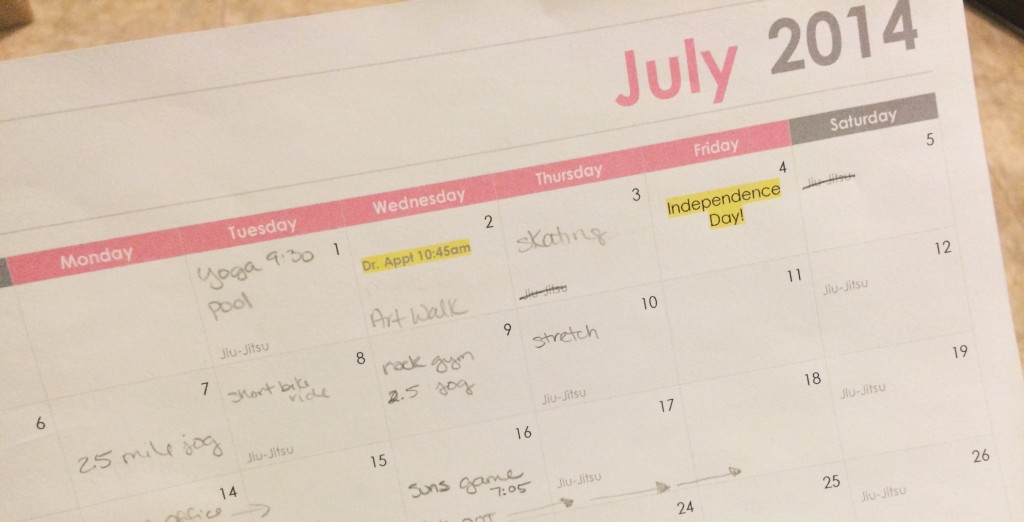 July 2014
Monday
Tuesday
Wednesday
Thursday
Friday
Saturday
1
yoga 9:30
pool
Jiu-Jitsu
2
Dr. Appt 10:45am
Art Walk
3
skating
Jiu-Jitsu
4
Independence
Day!
5
Jiu-Jitsu
6
7
2.5 mile jog
8
short bike
ride
Jiu-Jitsu
9
rock gym
2.5 jog
10
stretch
Jiu-Jitsu
11
12
Jiu-Jitsu
14
office
15
16
suns game
7:05
17
Jiu-Jitsu
18
19
Jiu-Jitsu
24
25
26
Jiu-Jitsu